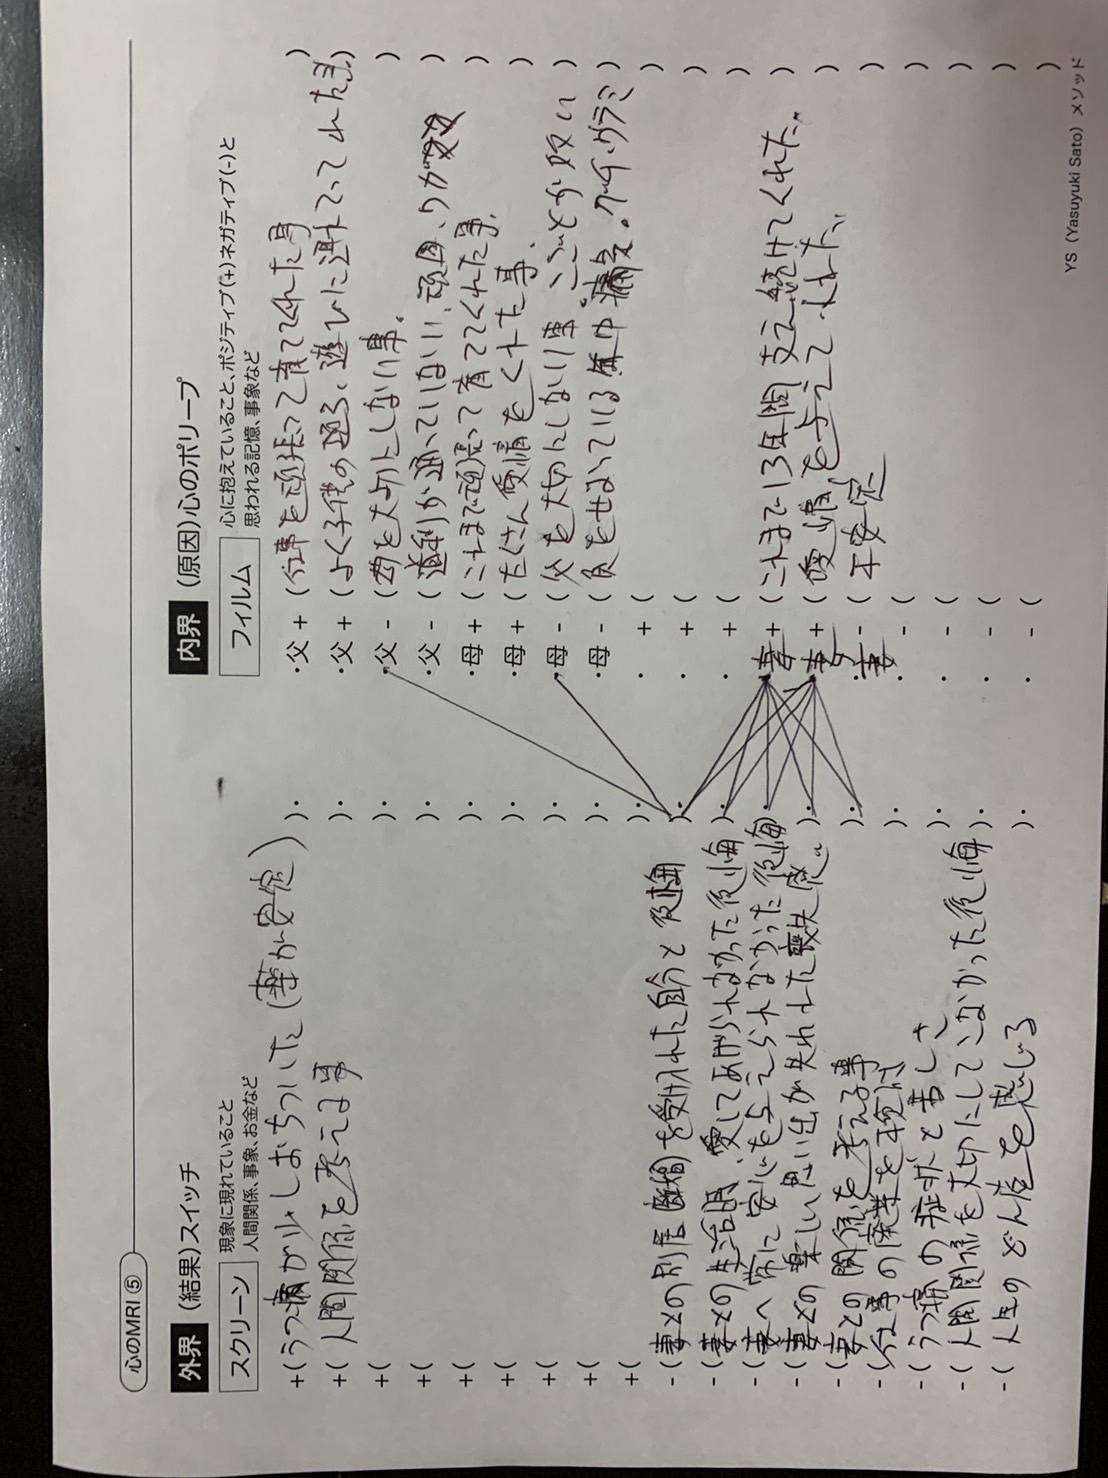 心のMRI ⑤
外界 (結果)スイッチ
スクリーン 現象に現れていること
人間関係、事象、お金など
+(うつ病が少しおちついた(薬が安定)).
+(人間関係を考える事 ).
+( ).
+( ).
+( ).
+( ).
+( ).
+( ).
+( ).
-(妻との別居 離婚を受け入れた自分と後悔 ).
-(妻との生活 愛してあげられなかった後悔 ).
-(妻へ 常に安心を与えられなかった後悔 ).
-(妻との楽しい思い出が失われた喪失感。 ).
-(妻との関係を考える事 ).
-(仕事の廃業を
-(うつ病の症状と苦しさ ).
-(人間関係を大切にしてこなかった後悔 ).
-(人生のどん底を感じる ).
内界 (原因)心のポリープ
フィルム 心に抱えていること、ポジティブ(+)ネガティブ(-)と
思われる記憶、事象など
・父 + (仕事を頑張って育ててくれた事 )
・父 + (よく子供の頃、遊びに連れてってくれた事。)
・父 - (母を大切にしない事。 )
・父 - ( 頑固、
・母 + (これまで頑張って育ててくれた事。 )
・母 + (たくさん愛情をくれた事。 )
・母 - (父を大切にしない事。
・母 - (
・ + ( )
・ + ( )
・ + ( )
・妻 + (これまで13年間支え続けてくれた。 )
・妻 + (愛情を与えてくれた。 )
・妻 - (不安定 )
・ - ( )
・ - ( )
・ - ( )
・ - ( )
YS (Yasuyuki Sato) メソッド